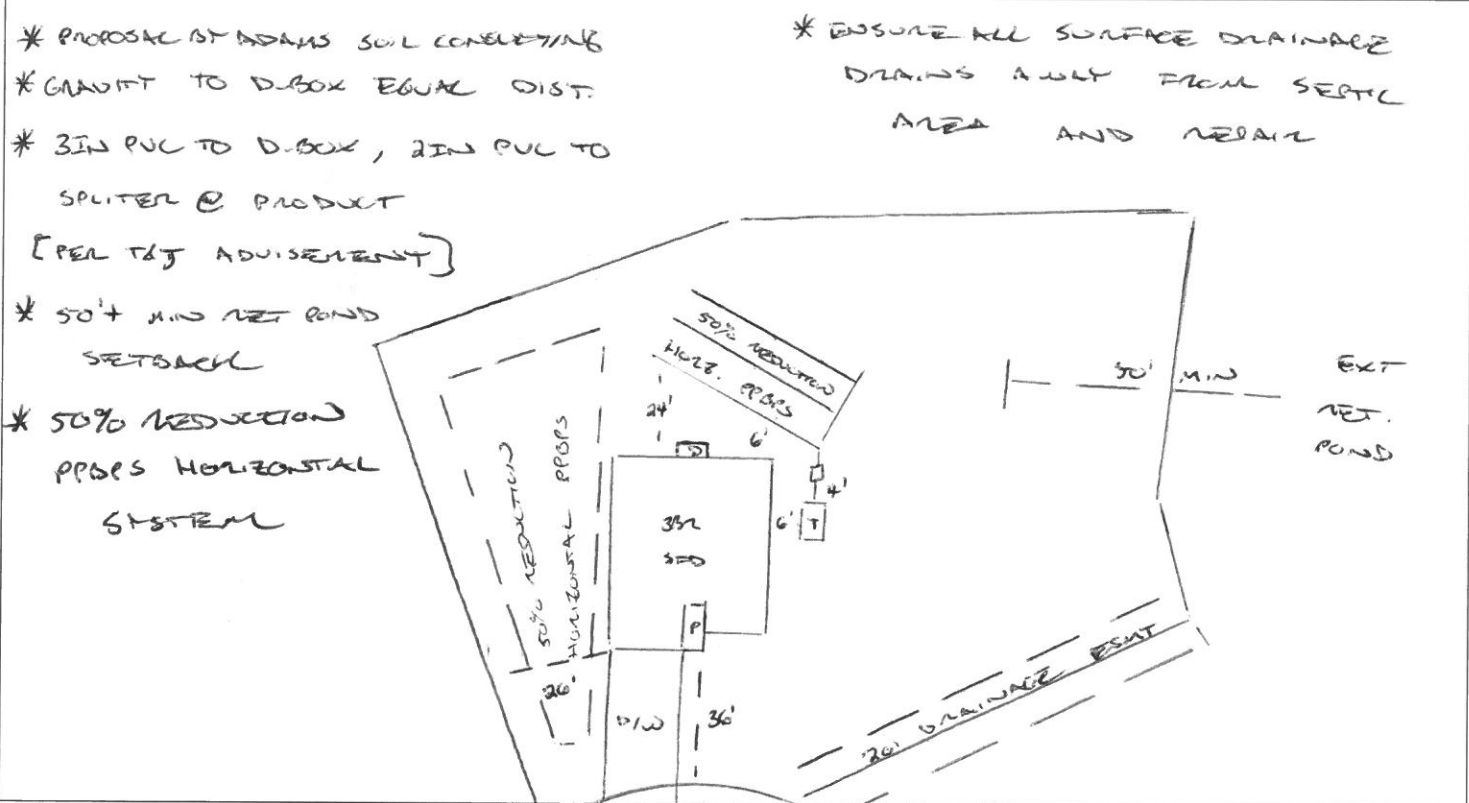 * PROPOSAL BY ADAMS SOIL CONSULTING
* GRAVITY TO D-BOX EQUAL DIST.
* 3IN PVC TO D-BOX, 2IN PVC TO
SPLITER @ PRODUCT
[PER T&J ADVISEMENT]
* 50'+ MIN RET POND
SETBACK
* 50% REDUCTION
PPBPS HORIZONTAL
SYSTEM
* ENSURE ALL SURFACE DRAINAGE
DRAINS AWAY FROM SEPTIC
AREA AND REPAIR
50% REDUCTION
HORZ. PPBPS
24'
6'
D
4'
6'
T
3BR
SFD
P
50% REDUCTION
HORIZONTAL PPBPS
26'
D/W
36'
50' MIN
EXT
RET.
POND
20' DRAINAGE ESMT